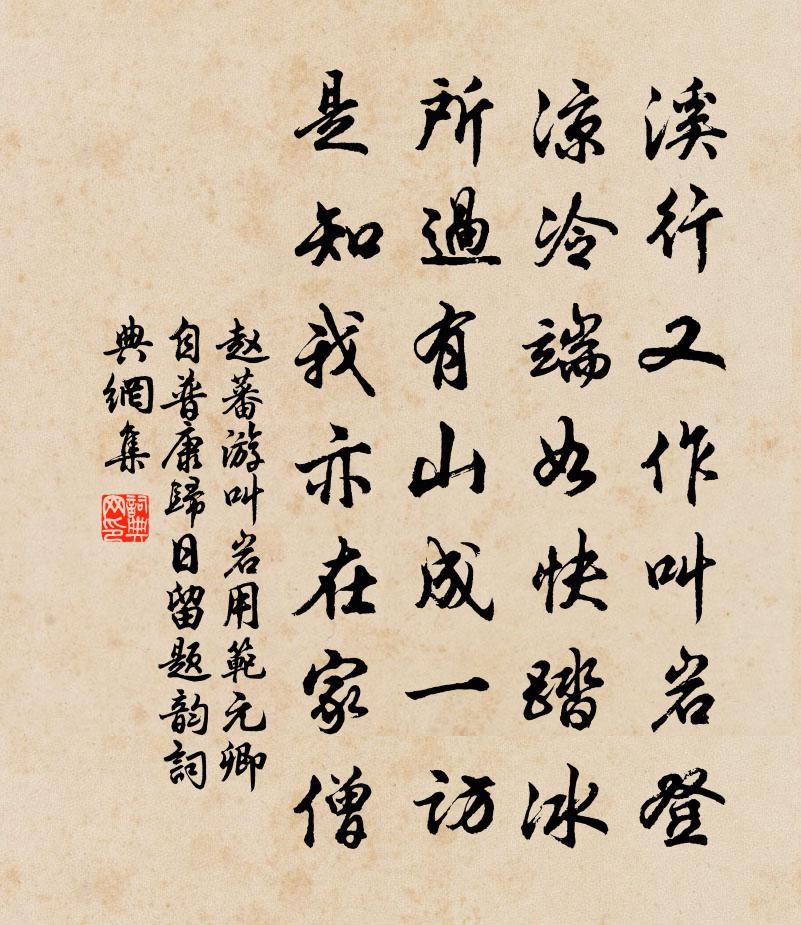 溪行又作叫岩登
凉冷端如快踏冰
所過有山成一訪
是知我亦在家僧
赵蕃游叫岩用範元卿
自普康歸日留题韵詞
典網集
詞典
网印